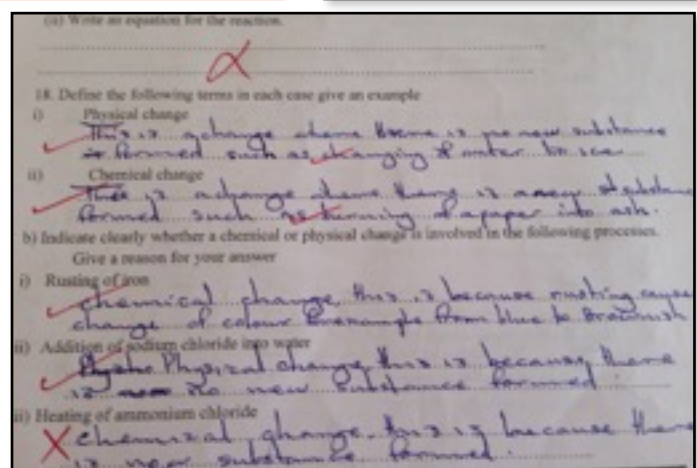 (ii) Write an equation for the reaction.
18. Define the following terms in each case give an example
i) Physical change
This is a change where there is no new substance
is formed such as changing of water to ice
ii) Chemical change
This is a change where there is a new substance
formed such as burning of a paper into ash.
b) Indicate clearly whether a chemical or physical change is involved in the following processes.
Give a reason for your answer
i) Rusting of iron
chemical change, this is because rusting cause
change of colour for example from blue to brownish
ii) Addition of sodium chloride into water
Physical change, this is because, there
is no new substance formed.
ii) Heating of ammonium chloride
chemical change. this is because there
is new substance formed.